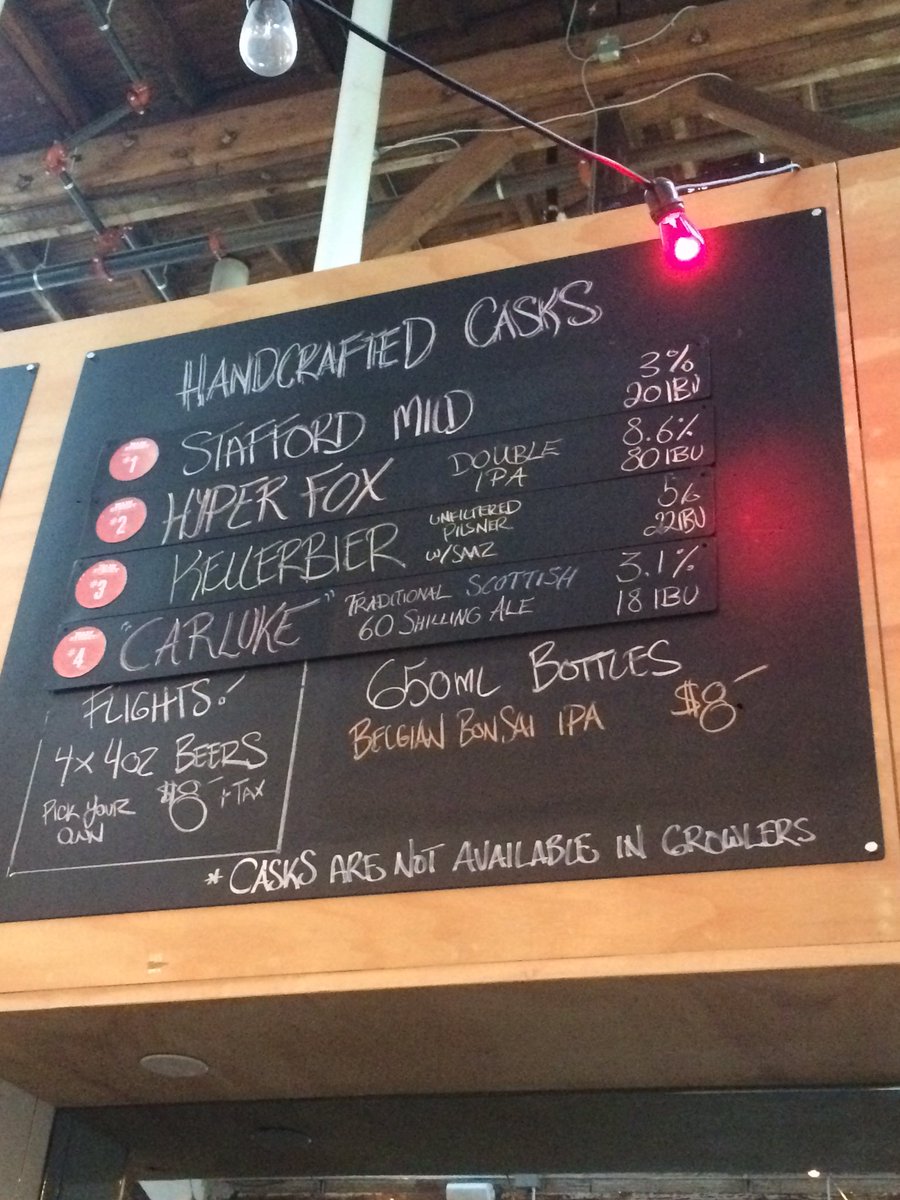 HANDCRAFTED CASKS
#1 STAFFORD MILD 3% 20 IBU
#2 HYPER FOX DOUBLE IPA 8.6% 80 IBU
#3 KELLERBIER UNFILTERED PILSNER W/SAAZ 5% 22 IBU
#4 "CARLUKE" TRADITIONAL SCOTTISH 60 SHILLING ALE 3.1% 18 IBU
FLIGHTS!
4X 4OZ BEERS
PICK YOUR OWN $8 +TAX
650ML BOTTLES
BELGIAN BONSAI IPA $8
* CASKS ARE NOT AVAILABLE IN GROWLERS